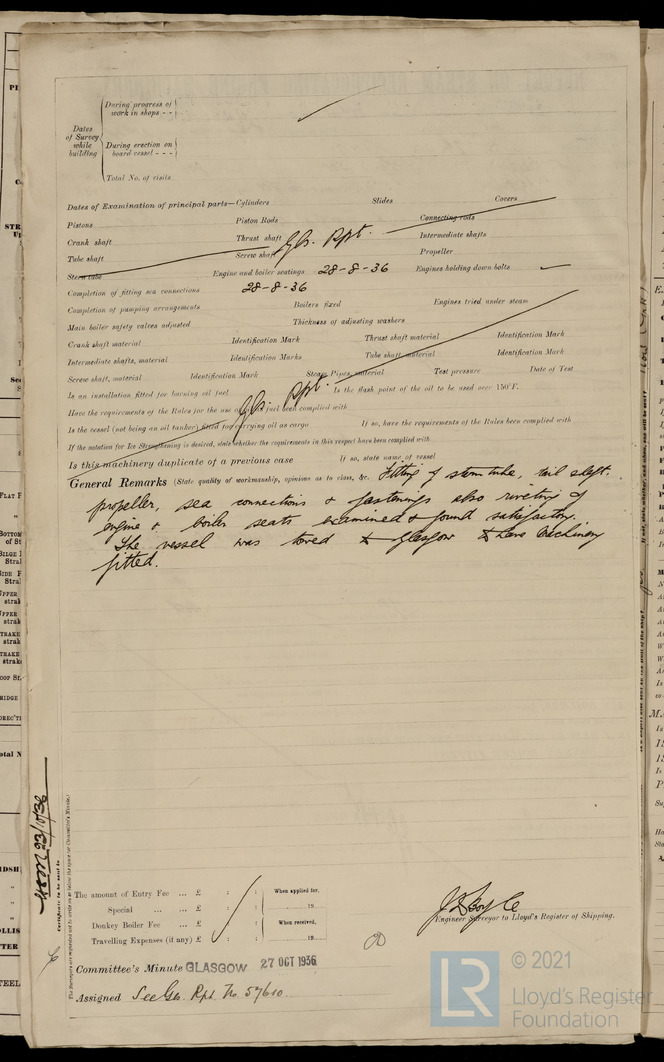 During progress of work in shops - -
Dates of Survey while building
During erection on board vessel - - -
Total No. of visits
Dates of Examination of principal parts—Cylinders Slides Covers
Pistons Piston Rods Connecting rods
Crank shaft Thrust shaft Gls. Rpt. Intermediate shafts
Tube shaft Screw shaft Propeller
Stern tube Engine and boiler seatings 28-8-36 Engines holding down bolts
Completion of fitting sea connections 28-8-36
Completion of pumping arrangements Boilers fixed Engines tried under steam
Main boiler safety valves adjusted Thickness of adjusting washers
Crank shaft material Identification Mark Thrust shaft material Identification Mark
Intermediate shafts, material Identification Marks Tube shaft, material Identification Mark
Screw shaft, material Identification Mark Steam Pipes, material Test pressure Date of Test
Is an installation fitted for burning oil fuel Gls. Rpt. Is the flash point of the oil to be used over 150°F.
Have the requirements of the Rules for the use of oil fuel been complied with
Is the vessel (not being an oil tanker) fitted for carrying oil as cargo If so, have the requirements of the Rules been complied with
If the notation for Ice Strengthening is desired, state whether the requirements in this respect have been complied with
Is this machinery duplicate of a previous case If so, state name of vessel
General Remarks (State quality of workmanship, opinions as to class, &c. Fitting of stern tube, tail shaft,
propeller, sea connections & fastenings also riveting of
engine & boiler seats examined & found satisfactory.
The vessel was towed to Glasgow to have machinery
fitted.
23/10/36
Certificate to be sent to
The Surveyors are requested not to write on or below the space for Committee's Minute.
The amount of Entry Fee ... £ : : When applied for,
Special ... ... £ : : 19
Donkey Boiler Fee ... £ : : When received,
Travelling Expenses (if any) £ : : 19
Engineer Surveyor to Lloyd's Register of Shipping.
Committee's Minute GLASGOW 27 OCT 1936
Assigned See Gls. Rpt. No 57610
LR
© 2021
Lloyd's Register
Foundation